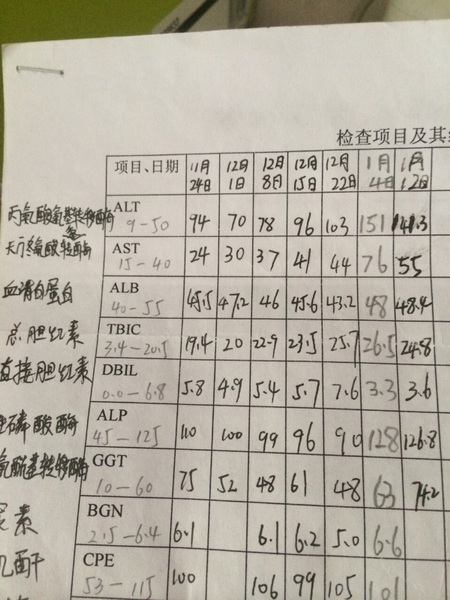 检查项目及其
项目、日期 11月24日 12月1日 12月8日 12月15日 12月22日 1月4日 1月12日
丙氨酸氨基转移酶 ALT 9-50 94 70 78 96 103 151 141.3
天门冬氨酸转酶 AST 15-40 24 30 37 41 44 76 55
血清白蛋白 ALB 40-55 45.5 47.2 46 45.6 43.2 48 48.4
总胆红素 TBIC 3.4-20.5 19.4 20 22.9 23.5 25.7 26.5 24.8
直接胆红素 DBIL 0.0-6.8 5.8 4.9 5.4 5.7 7.6 3.3 3.6
磷酸酶 ALP 45-125 110 100 99 96 90 128 126.8
氨酰基转移酶 GGT 10-60 75 52 48 61 48 63 74.2
尿素 BGN 2.5-6.4 6.1 6.1 6.2 5.0 6.6
肌酐 CPE 53-115 100 106 99 105 101